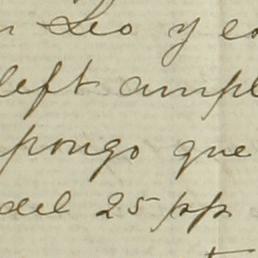 n Leo y es
left ampl
pongo que
del 25 pp